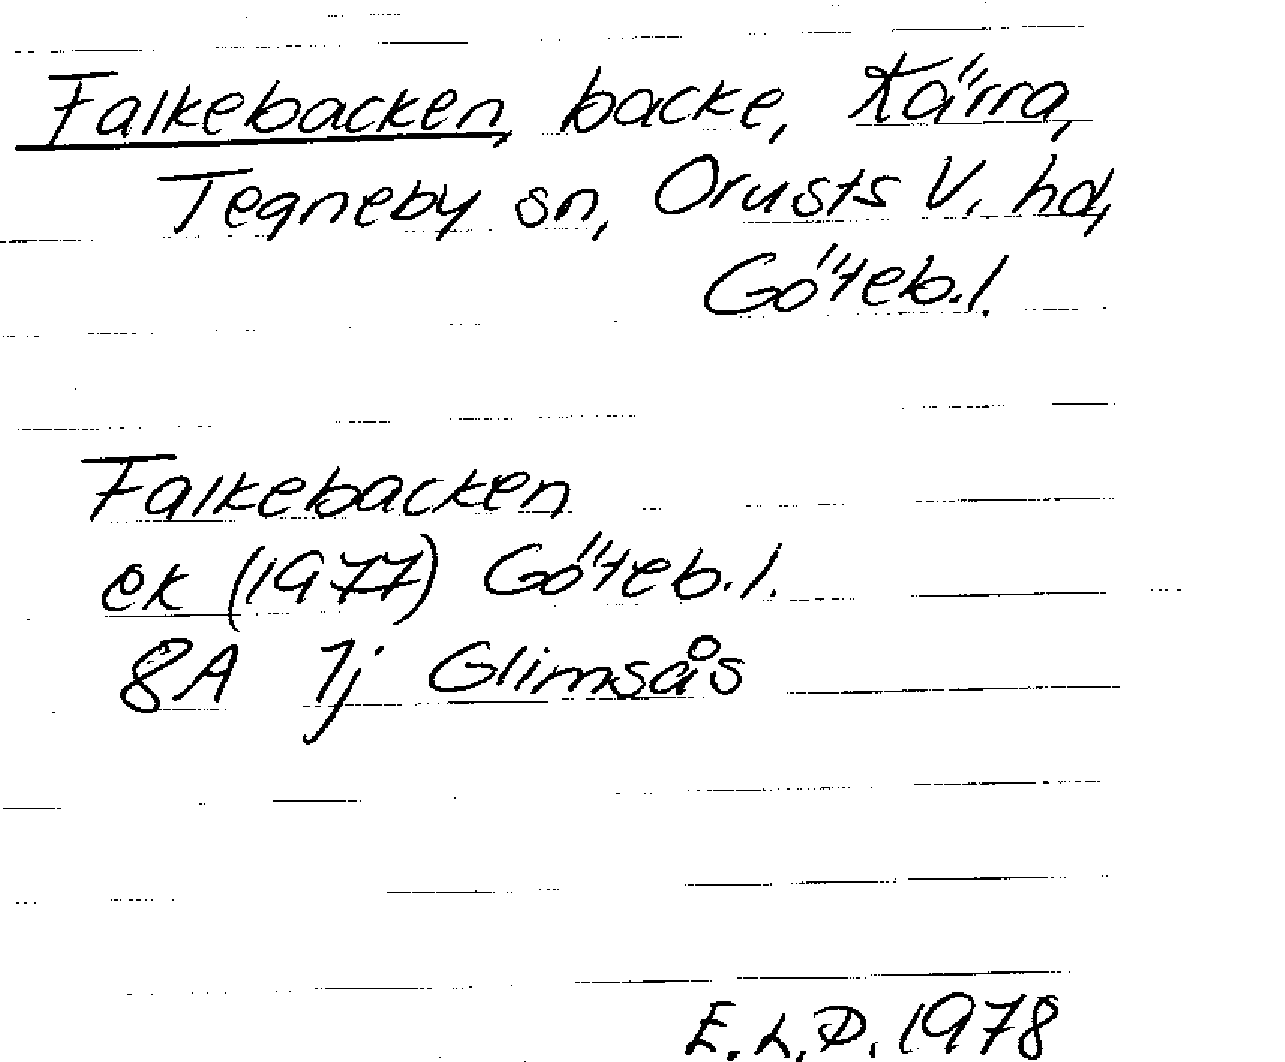 Falkebacken, backe, Kärra,
Tegneby sn, Orusts V. hd,
Göteb.l.
Falkebacken
ek (1977) Göteb.l.
8A 7j Glimsås
E.L.D. 1978